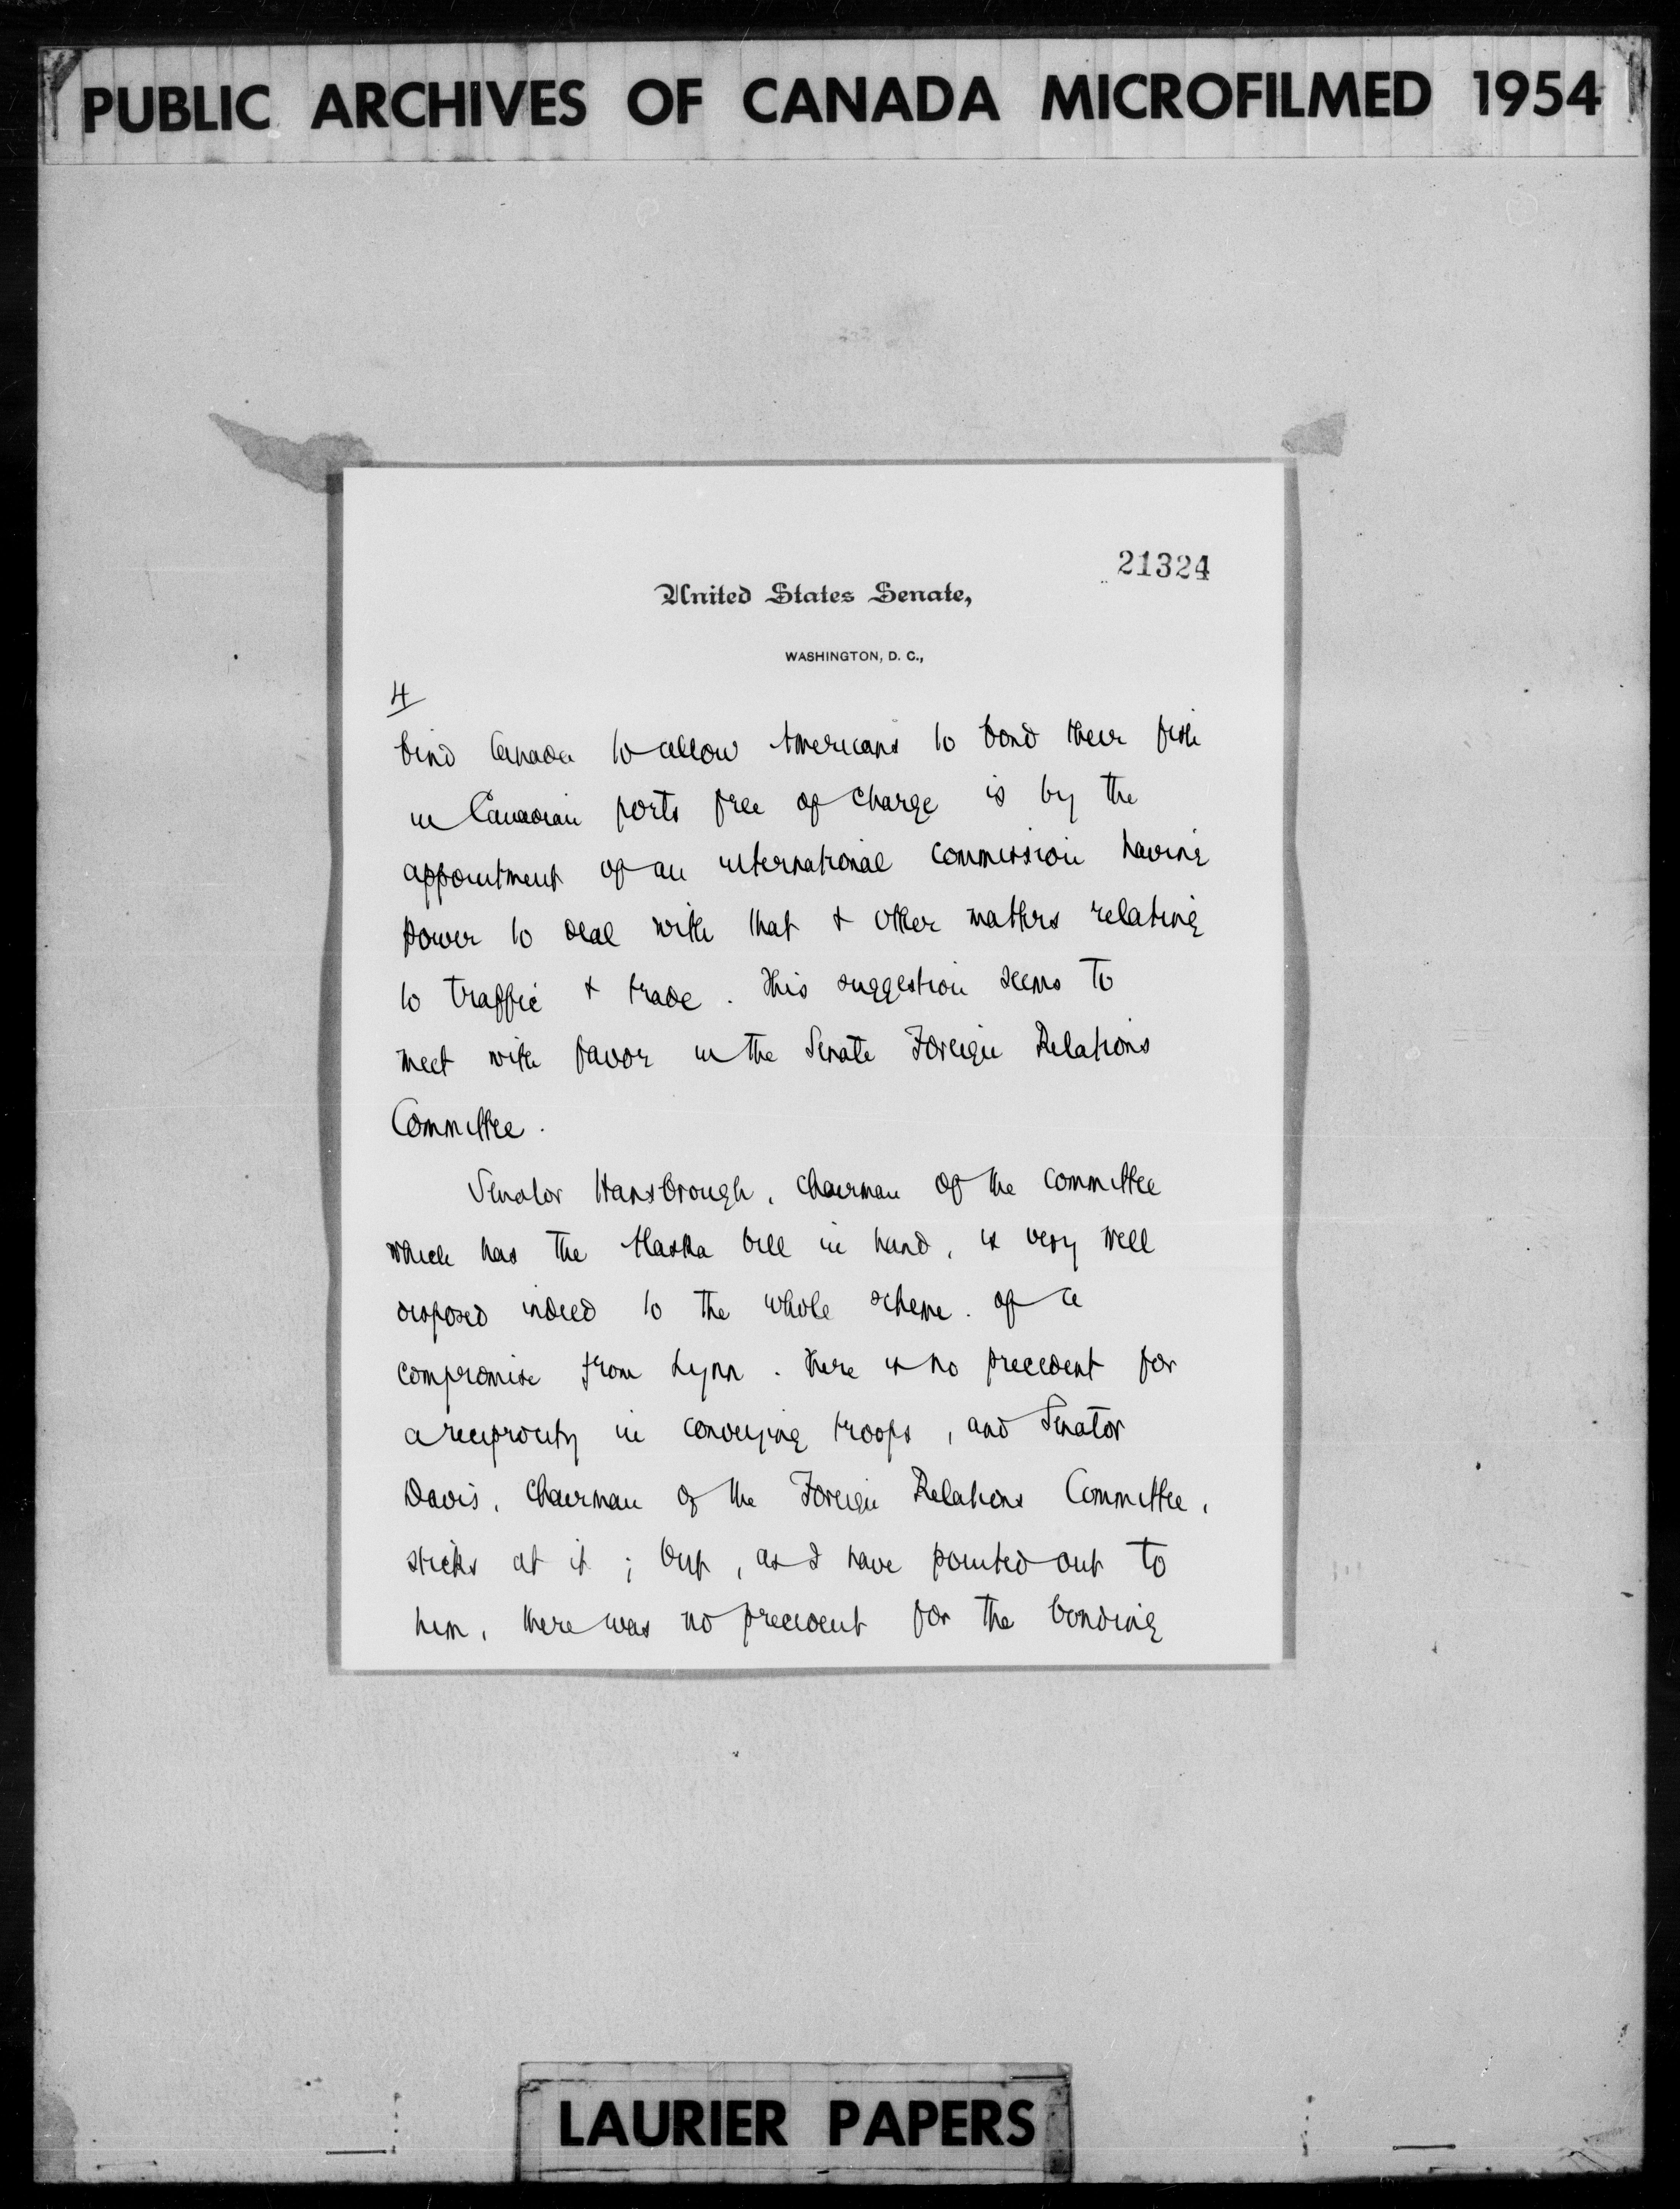 PUBLIC ARCHIVES OF CANADA MICROFILMED 1954
21324
United States Senate,
WASHINGTON, D. C.,
4
bind Canada to allow Americans to bond their fish
in Canadian ports free of charge is by the
appointment of an international commission having
power to deal with that & other matters relating
to traffic & trade. This suggestion seems to
meet with favor in the Senate Foreign Relations
Committee.
Senator Hansbrough, chairman of the committee
which has the Alaska bill in hand, is very well
disposed indeed to the whole scheme of a
compromise from Lynn. There is no precedent for
a reciprocity in conveying troops, and Senator
Davis, Chairman of the Foreign Relations Committee,
sticks at it; but, as I have pointed out to
him, there was no precedent for the bonding
LAURIER PAPERS